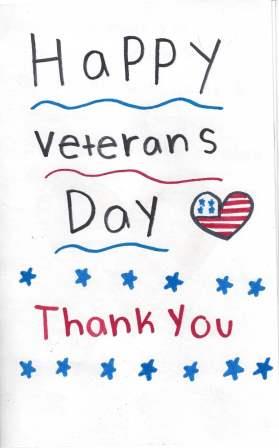 HaPPY
Veterans
Day
Thank You